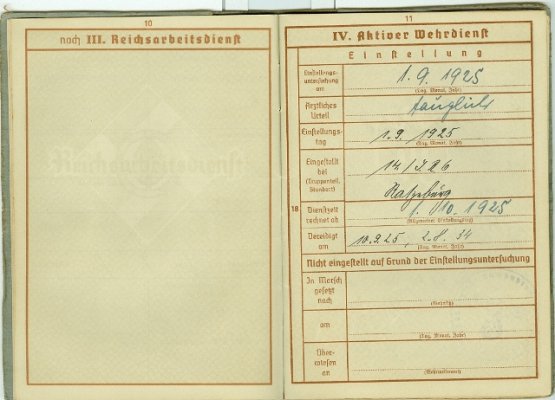 10
noch III. Reichsarbeitsdienst
Reichsarbeitsdienst
11
IV. Aktiver Wehrdienst
Einstellung
Einstellungs-
untersuchung
am
1. 9. 1925
(Tag, Monat, Jahr)
Ärztliches
Urteil
tauglich
Einstellungs-
tag
1. 9. 1925
(Tag, Monat, Jahr)
Eingestellt
bei
(Truppenteil,
Standort)
14./I.R 6
Ratzeburg
18
Dienstzeit
rechnet ab
1. 10. 1925
Vereidigt
am
10.9.25, 2.8.34
(Tag, Monat, Jahr)
Nicht eingestellt auf Grund der Einstellungsuntersuchung
In Marsch
gesetzt
nach
am
(Tag, Monat, Jahr)
Über-
wiesen
an